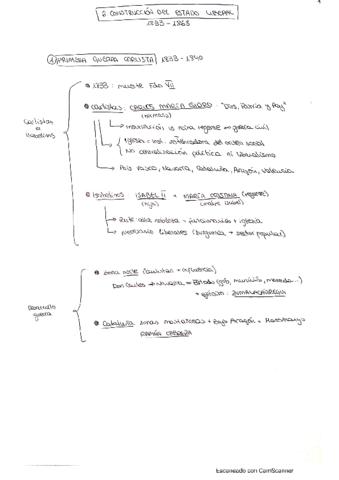 2 CONSTRUCCIÓN DEL ESTADO LIBERAL
1833 - 1868
1 PRIMERA GUERRA CARLISTA 1833 - 1840
Carlistas
e
Isabelinos
1833: muerte Fdo VII
Carlistas: CARLOS MARÍA ISIDRO "Dios, Patria y Rey"
(hermano)
Insurrección vs reina regente → guerra civil
Iglesia = inst. del orden social
No centralización política ni liberalismo
País Vasco, Navarra, Cataluña, Aragón, Valencia
Isabelinos: ISABEL II + MARÍA CRISTINA (regente)
(hija)
alta nobleza - funcionarios + iglesia
liberales (burguesía + sector popular)
Desarrollo
guerra
Zona norte (carlistas + influencia)
Don Carlos → Navarra → Estado (gob, municipio, moneda...)
+ ejército: ZUMALACÁRREGUI
Cataluña: zonas montañosas + Bajo Aragón + Maestrazgo
RAMÓN CABRERA
Escaneado con CamScanner